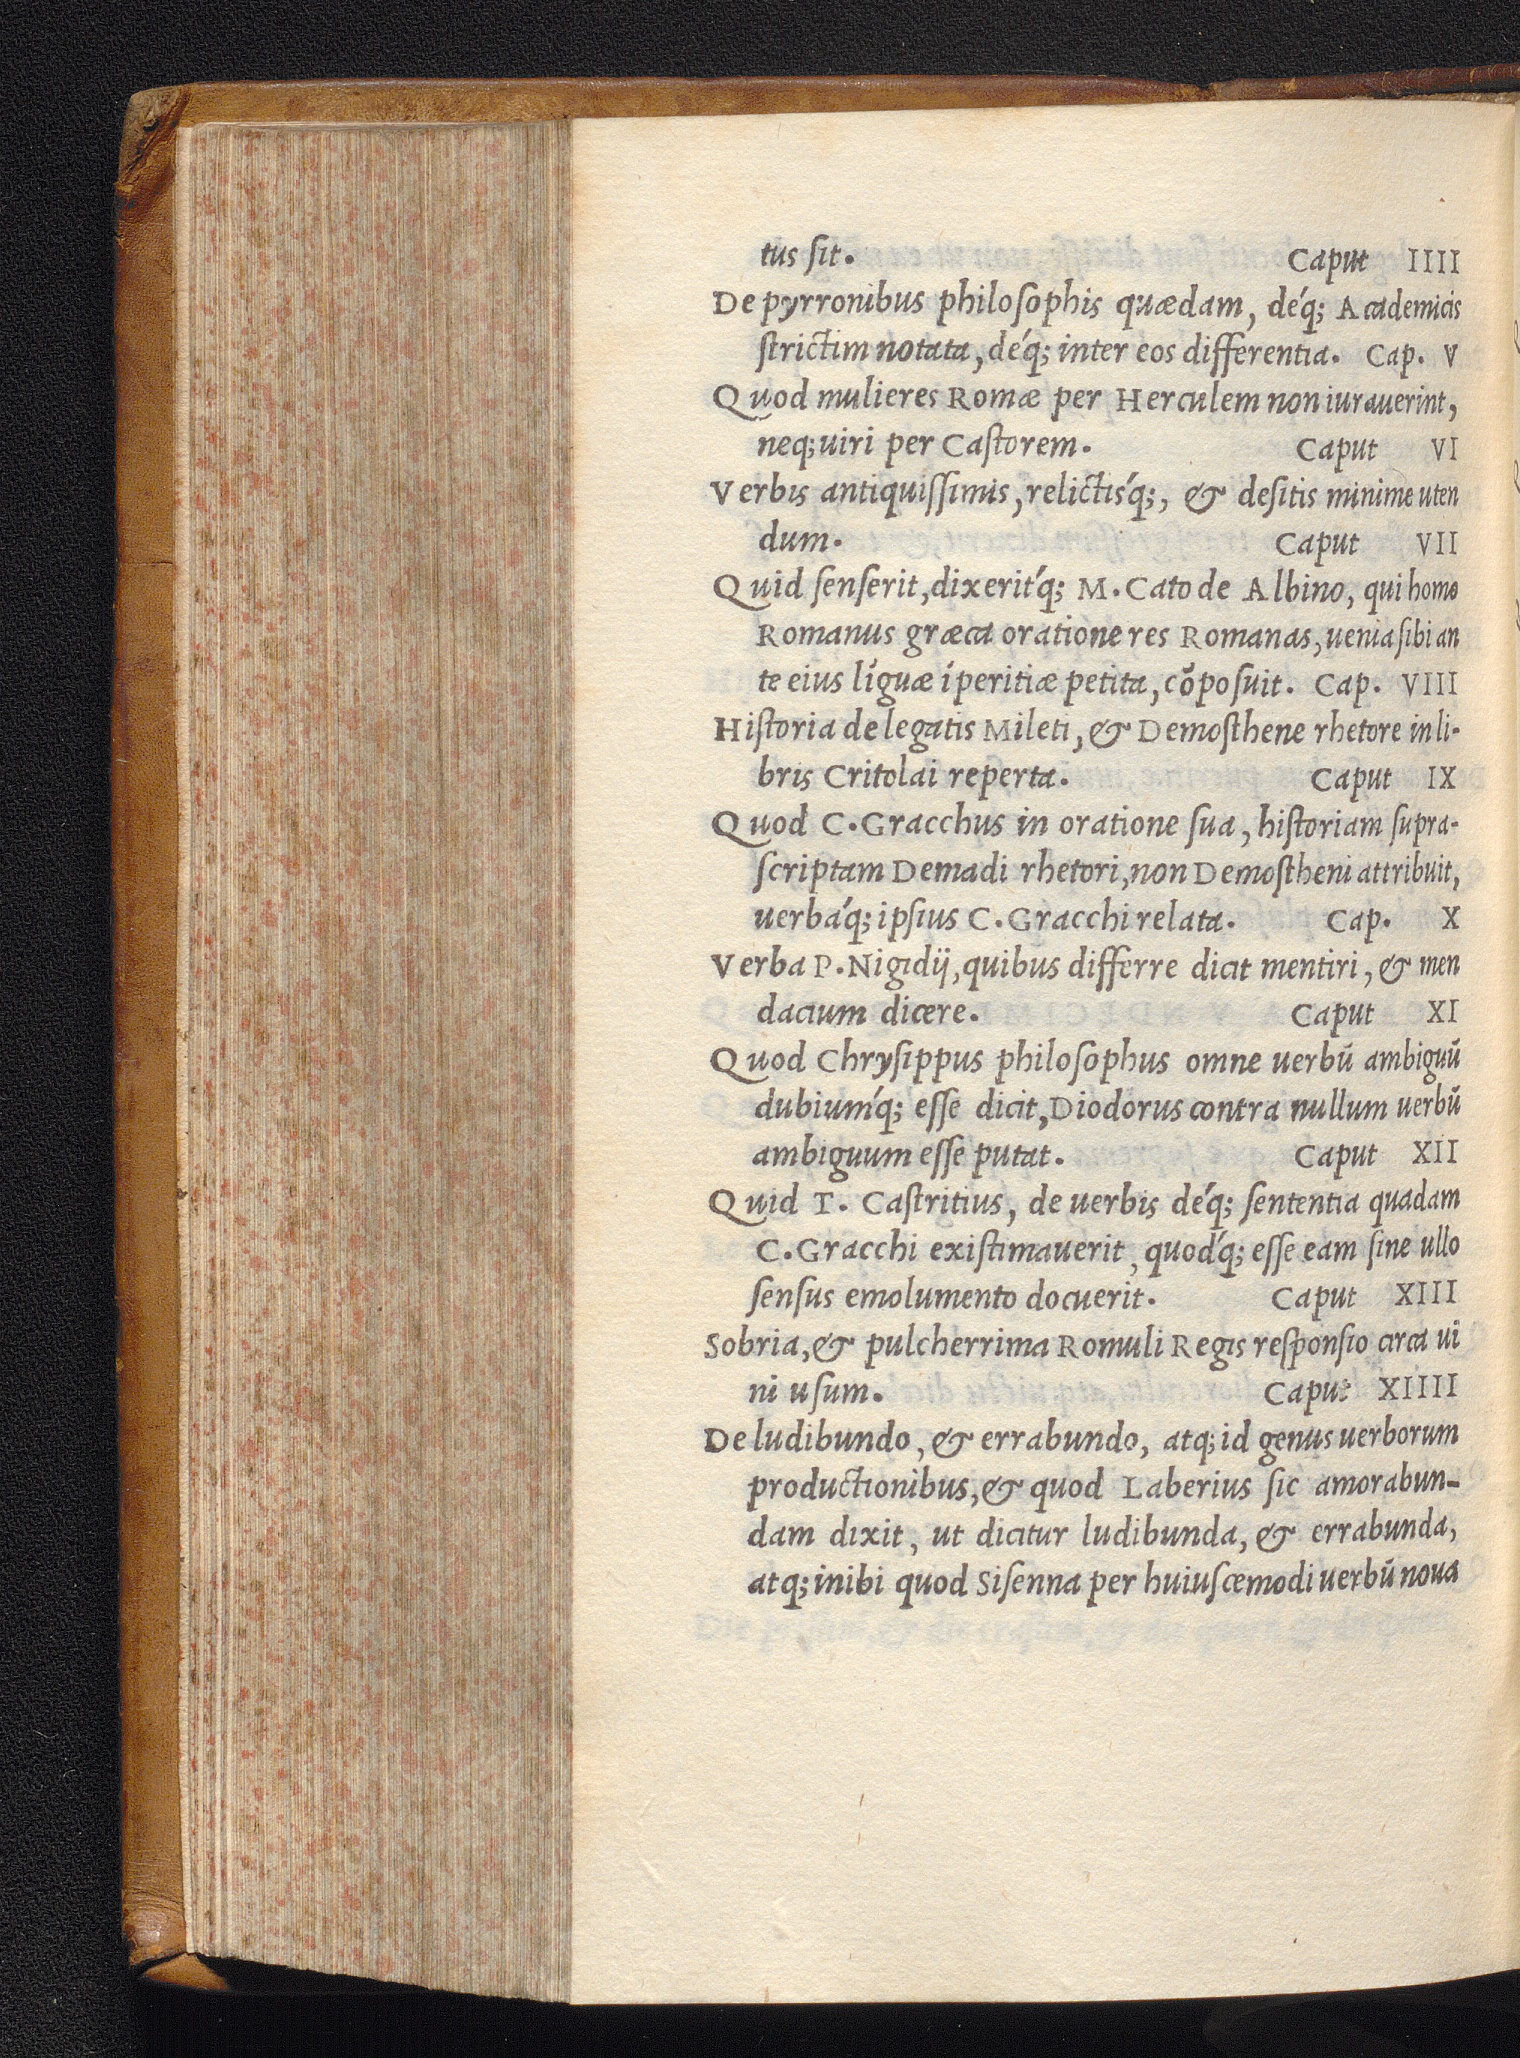 tus ſit. Caput IIII
De pyrronibus philoſophis quædam, déq; Academicis
ſtrictim notata, déq; inter eos differentia. Cap. V
Quod mulieres Romæ per Herculem non iurauerint,
neq; uiri per Caſtorem. Caput VI
Verbis antiquiſſimis, relictiśq;, & deſitis minime uten
dum. Caput VII
Quid ſenſerit, dixerit́q; M. Cato de Albino, qui homo
Romanus græca oratione res Romanas, uenia ſibi an
te eius líguæ íperitiæ petita, cõpoſuit. Cap. VIII
Hiſtoria de legatis Mileti, & Demoſthene rhetore in li-
bris Critolai reperta. Caput IX
Quod C. Gracchus in oratione ſua, hiſtoriam ſupra-
ſcriptam Demadi rhetori, non Demoſtheni attribuit,
uerbáq; ipſius C. Gracchi relata. Cap. X
Verba P. Nigidij, quibus differre dicit mentiri, & men
dacium dicere. Caput XI
Quod Chryſippus philoſophus omne uerbū ambiguū
dubiuḿq; eſſe dicit, Diodorus contra nullum uerbū
ambiguum eſſe putat. Caput XII
Quid T. Caſtritius, de uerbis déq; ſententia quadam
C. Gracchi exiſtimauerit, quod́q; eſſe eam ſine ullo
ſenſus emolumento docuerit. Caput XIII
Sobria, & pulcherrima Romuli Regis reſponſio circa ui
ni uſum. Caput XIIII
De ludibundo, & errabundo, atq; id genus uerborum
productionibus, & quod Laberius ſic amorabun-
dam dixit, ut dicitur ludibunda, & errabunda,
atq; inibi quod Siſenna per huiuſcemodi uerbū noua